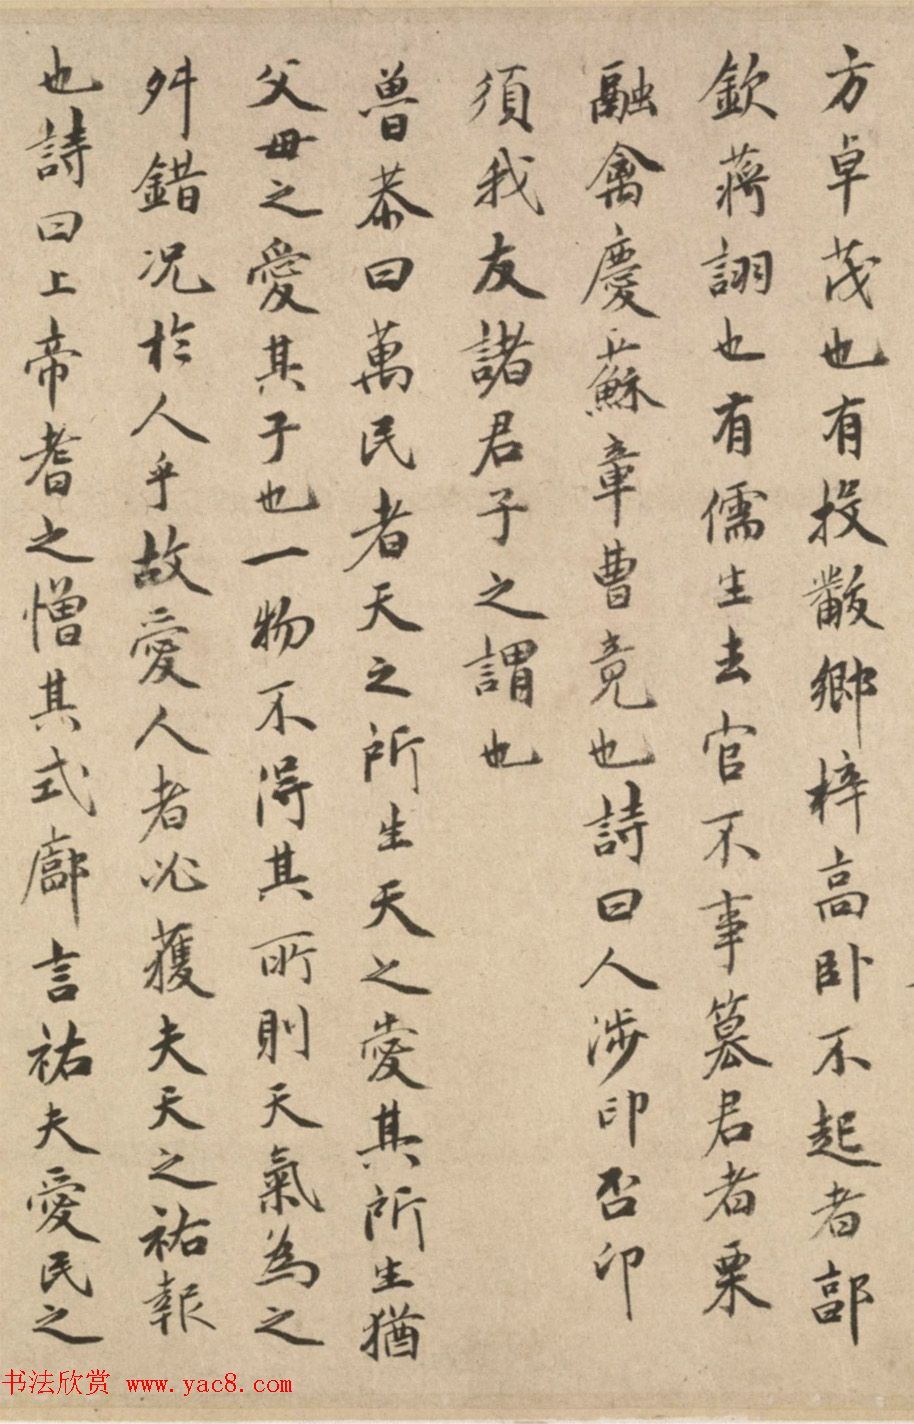 方卓茂也有投黻鄉梓高卧不起者郃
欽蔣詡也有儒生去官不事墓君者栗
融禽慶蘇章曹竟也詩曰人涉卬否卬
須我友諸君子之謂也
魯恭曰萬民者天之所生天之愛其所生猶
父母之愛其子也一物不得其所則天氣為之
舛錯况於人乎故愛人者必獲夫天之祐報
也詩曰上帝耆之憎其式廓言祐夫愛民之
书法欣赏 www.yac8.com